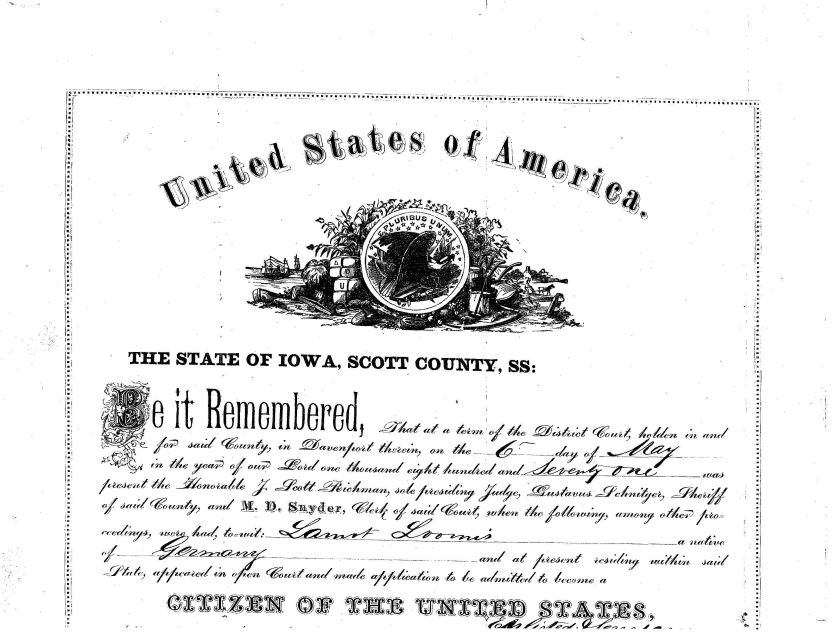 United States of America.
E PLURIBUS UNUM
THE STATE OF IOWA, SCOTT COUNTY, SS:
Be it Remembered, That at a term of the District Court, holden in and
for said County, in Davenport therein, on the 6 day of May
in the year of our Lord one thousand eight hundred and Seventy one was
present the Honorable J. Scott Richman, sole presiding Judge, Gustavus Schnitger, Sheriff
of said County, and M. D. Snyder, Clerk of said Court, when the following, among other pro-
ceedings, were had, to-wit: Loomis a native
of Germany and at present residing within said
State, appeared in open Court and made application to be admitted to become a
CITIZEN OF THE UNITED STATES,